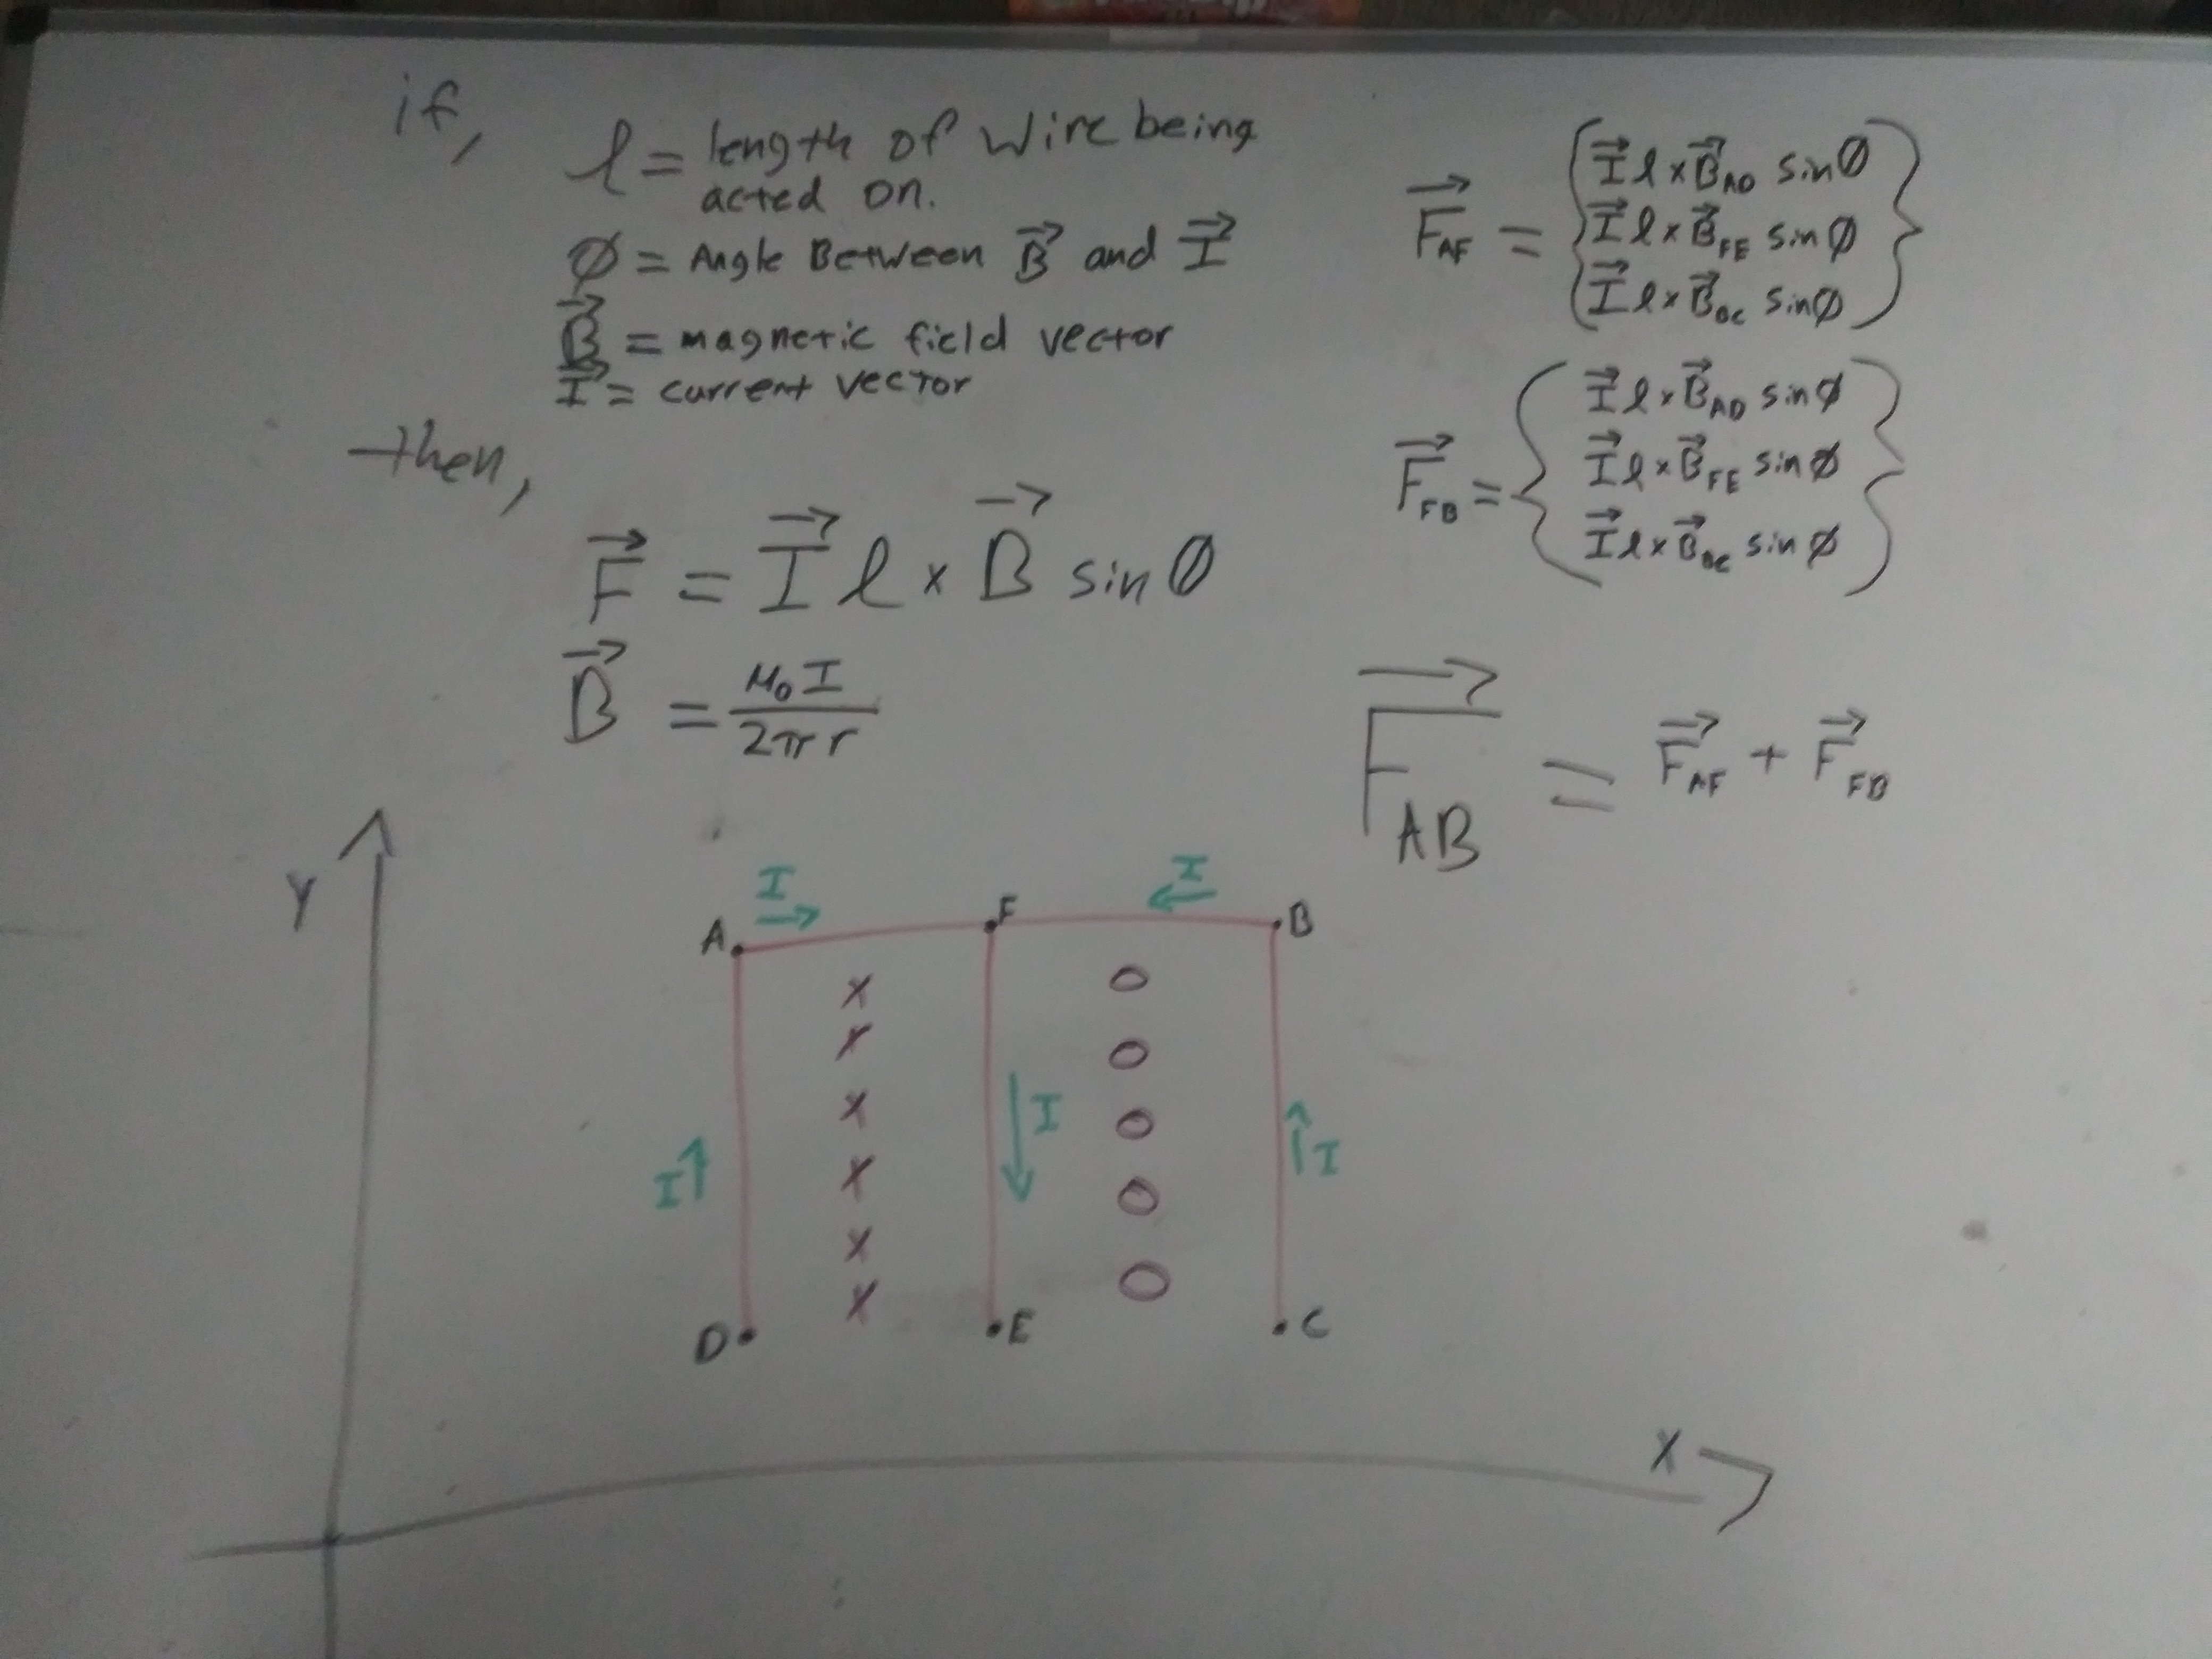 if,
l = length of wire being
acted on.
Ø = Angle Between B⃗ and I⃗
B⃗ = magnetic field vector
I⃗ = current vector
then,
F⃗ = I⃗ l × B⃗ sin Ø
B⃗ = μ₀I / 2πr
F⃗_AF = { I⃗ l × B⃗_AD sin Ø
I⃗ l × B⃗_FE sin Ø
I⃗ l × B⃗_BC sin Ø }
F⃗_FB = { I⃗ l × B⃗_AD sin Ø
I⃗ l × B⃗_FE sin Ø
I⃗ l × B⃗_BC sin Ø }
F⃗_AB = F⃗_AF + F⃗_FB
Y
I I
A F B
x o
x o
x o
x o
x o
x
I I I
D E C
X